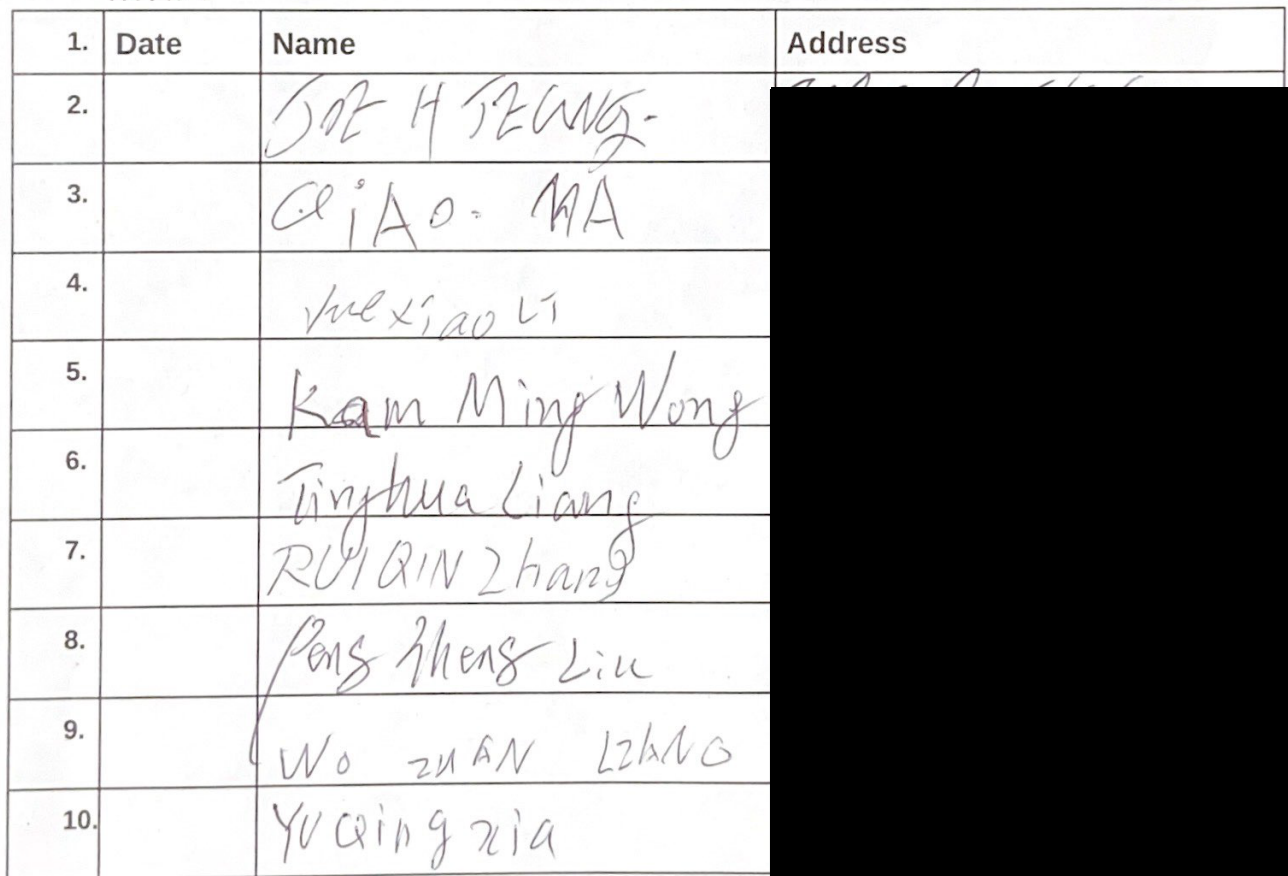 1. Date Name Address
2. JOE H JEUNG.
3. QiAo. MA
4. xiao Li
5. Kam Ming Wong
6. Tinghua Liang
7. RUI QIN Zhang
8. Peng Zheng Liu
9. Wo ZUAN LIANG
10. YU Qing xia